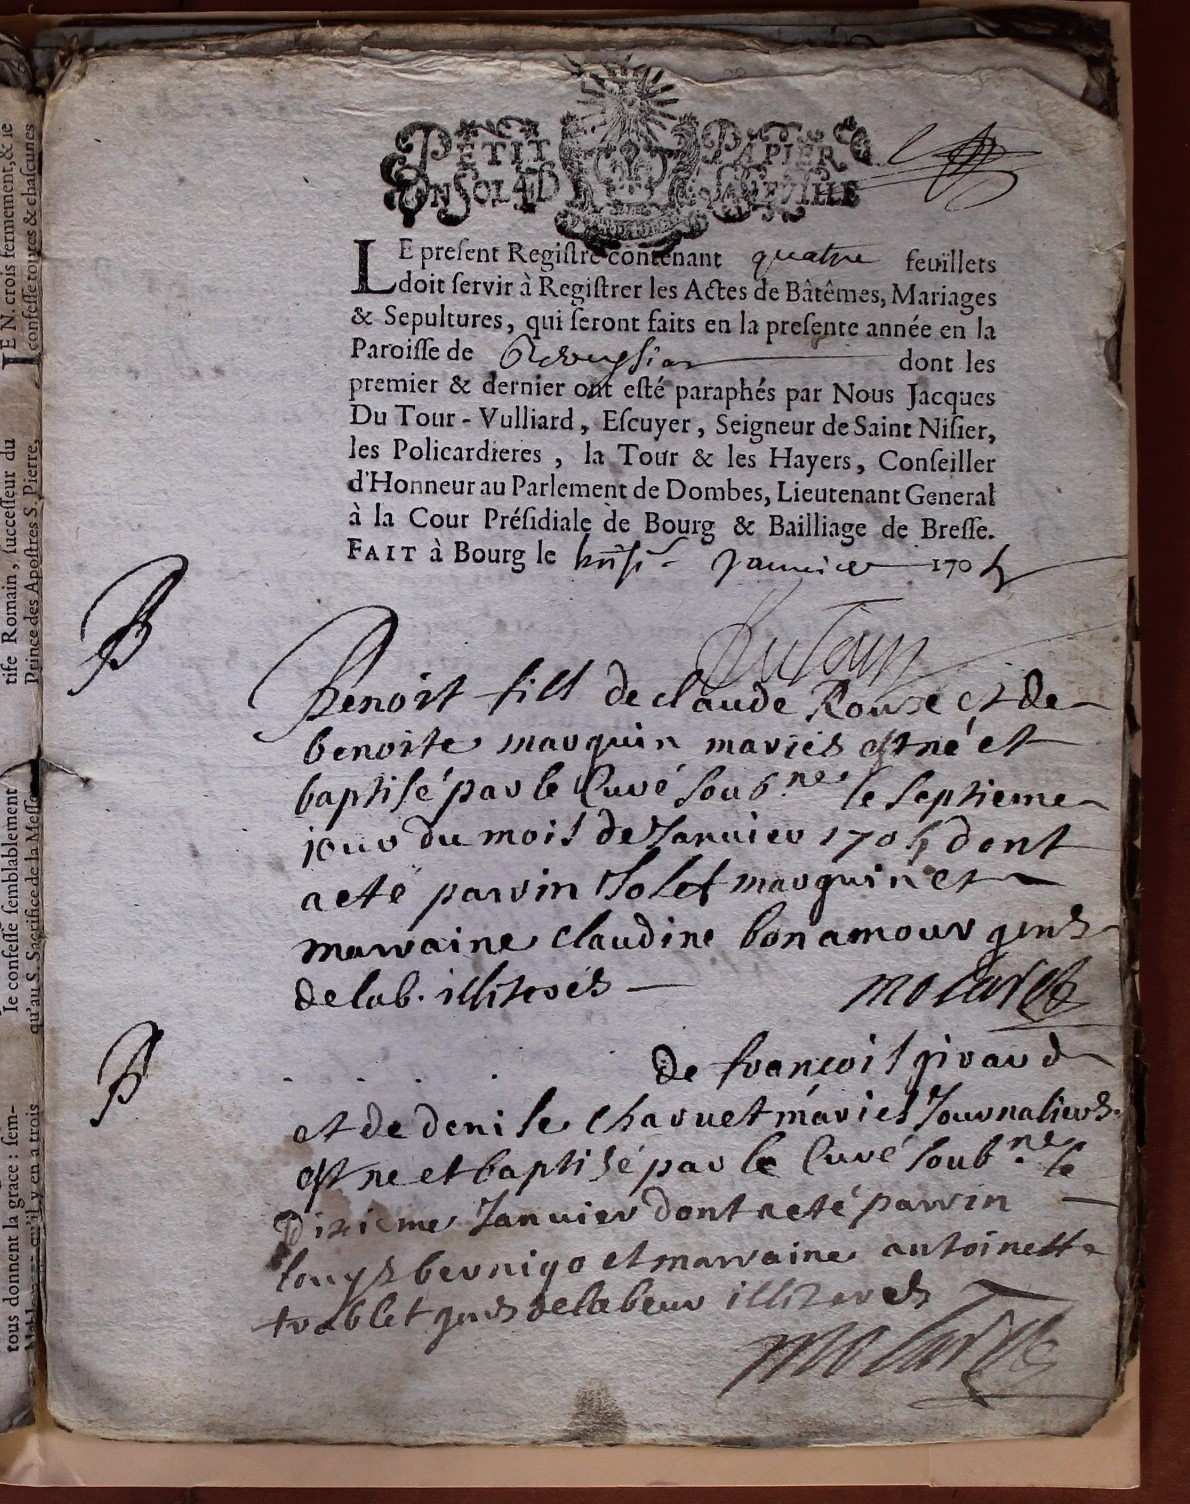 PETIT PAPIER
LE preſent Regiſtre contenant quatre feuïllets
doit ſervir à Regiſtrer les Actes de Bâtêmes, Mariages
& Sepultures, qui ſeront faits en la preſente année en la
Paroiſſe de dont les
premier & dernier ont eſté paraphés par Nous Jacques
Du Tour-Vulliard, Eſcuyer, Seigneur de Saint Niſier,
les Policardieres, la Tour & les Hayers, Conſeiller
d'Honneur au Parlement de Dombes, Lieutenant General
à la Cour Préſidiale de Bourg & Bailliage de Breſſe.
FAIT à Bourg le Janvier 170
DuTour
B
Benoist fils de claude Rouse et de
benoiste marquin mariés est né et
baptisé par le Curé soub.ne le septieme
jour du mois de Janvier 170 dont
a eté parrin marquin et
marraine claudine bonamour gens
de lab. illiterés
B
de françois giraud
et de denise charuet mariés Journaliers
est ne et baptisé par le Curé soub.ne le
Dixieme Janvier dont a eté parrin
louys bernigo et marraine antoinette
trablet gens de labeur illiterés
IE N. crois fermement, & ie
confeſſe toutes & chaſcunes
tife Romain, ſucceſſeur du
Prince des Apoſtres S. Pierre,
Ie confeſſe ſemblablement
qu'au S. Sacrifice de la Meſſe
tous donnent la grace : ſem-
qu'il y en a trois